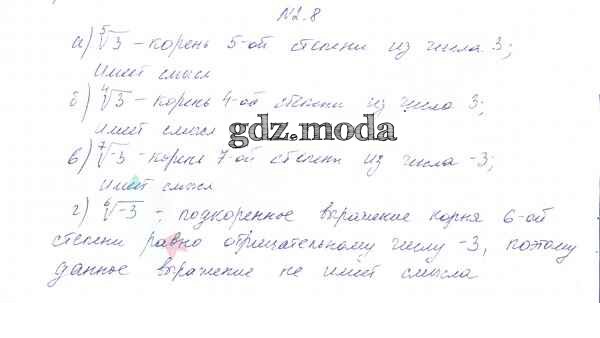 №2.8
а) ⁵√3 – корень 5-ой степени из числа 3;
имеет смысл
б) ⁴√3 – корень 4-ой степени из числа 3;
имеет смысл
gdz.moda
в) ⁷√-3 – корень 7-ой степени из числа -3;
имеет смысл
г) ⁶√-3 – подкоренное выражение корня 6-ой
степени равно отрицательному числу -3, поэтому
данное выражение не имеет смысла